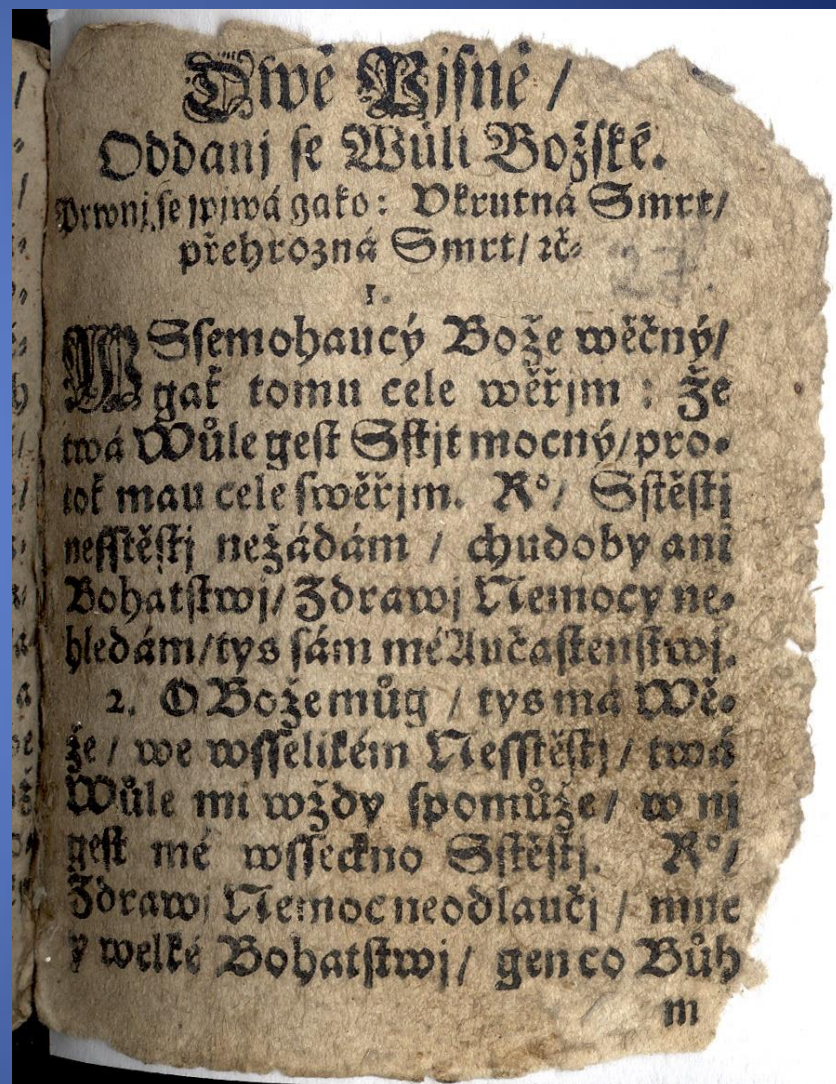 Dwě Pjsně /
Oddanj se Wůli Božské.
Prwnj se zpiwá gako: Vkrutná Smrt/
přehrozná Smrt/ ꝛč.
27.
1.
WSsemohaucý Bože wěčný/
gak tomu cele wěřjm : Že
twá Wůle gest Sstjt mocný/pro-
tok mau cele swěřjm. R°/ Sstěstj
nesstěstj nežádám / chudoby ani
Bohatstwj/ Zdrawj Nemocy ne-
hledám/tys sám mé Aučastenstwj.
2. O Bože můg / tys má Wě-
že / we wsselikém Nesstěstj / twá
Wůle mi wždy spomůže/ w nj
gest mé wsseckno Sstěstj. R°/
Zdrawj Nemoc neodlaučj / mne
y welké Bohatstwj/ gen co Bůh
m